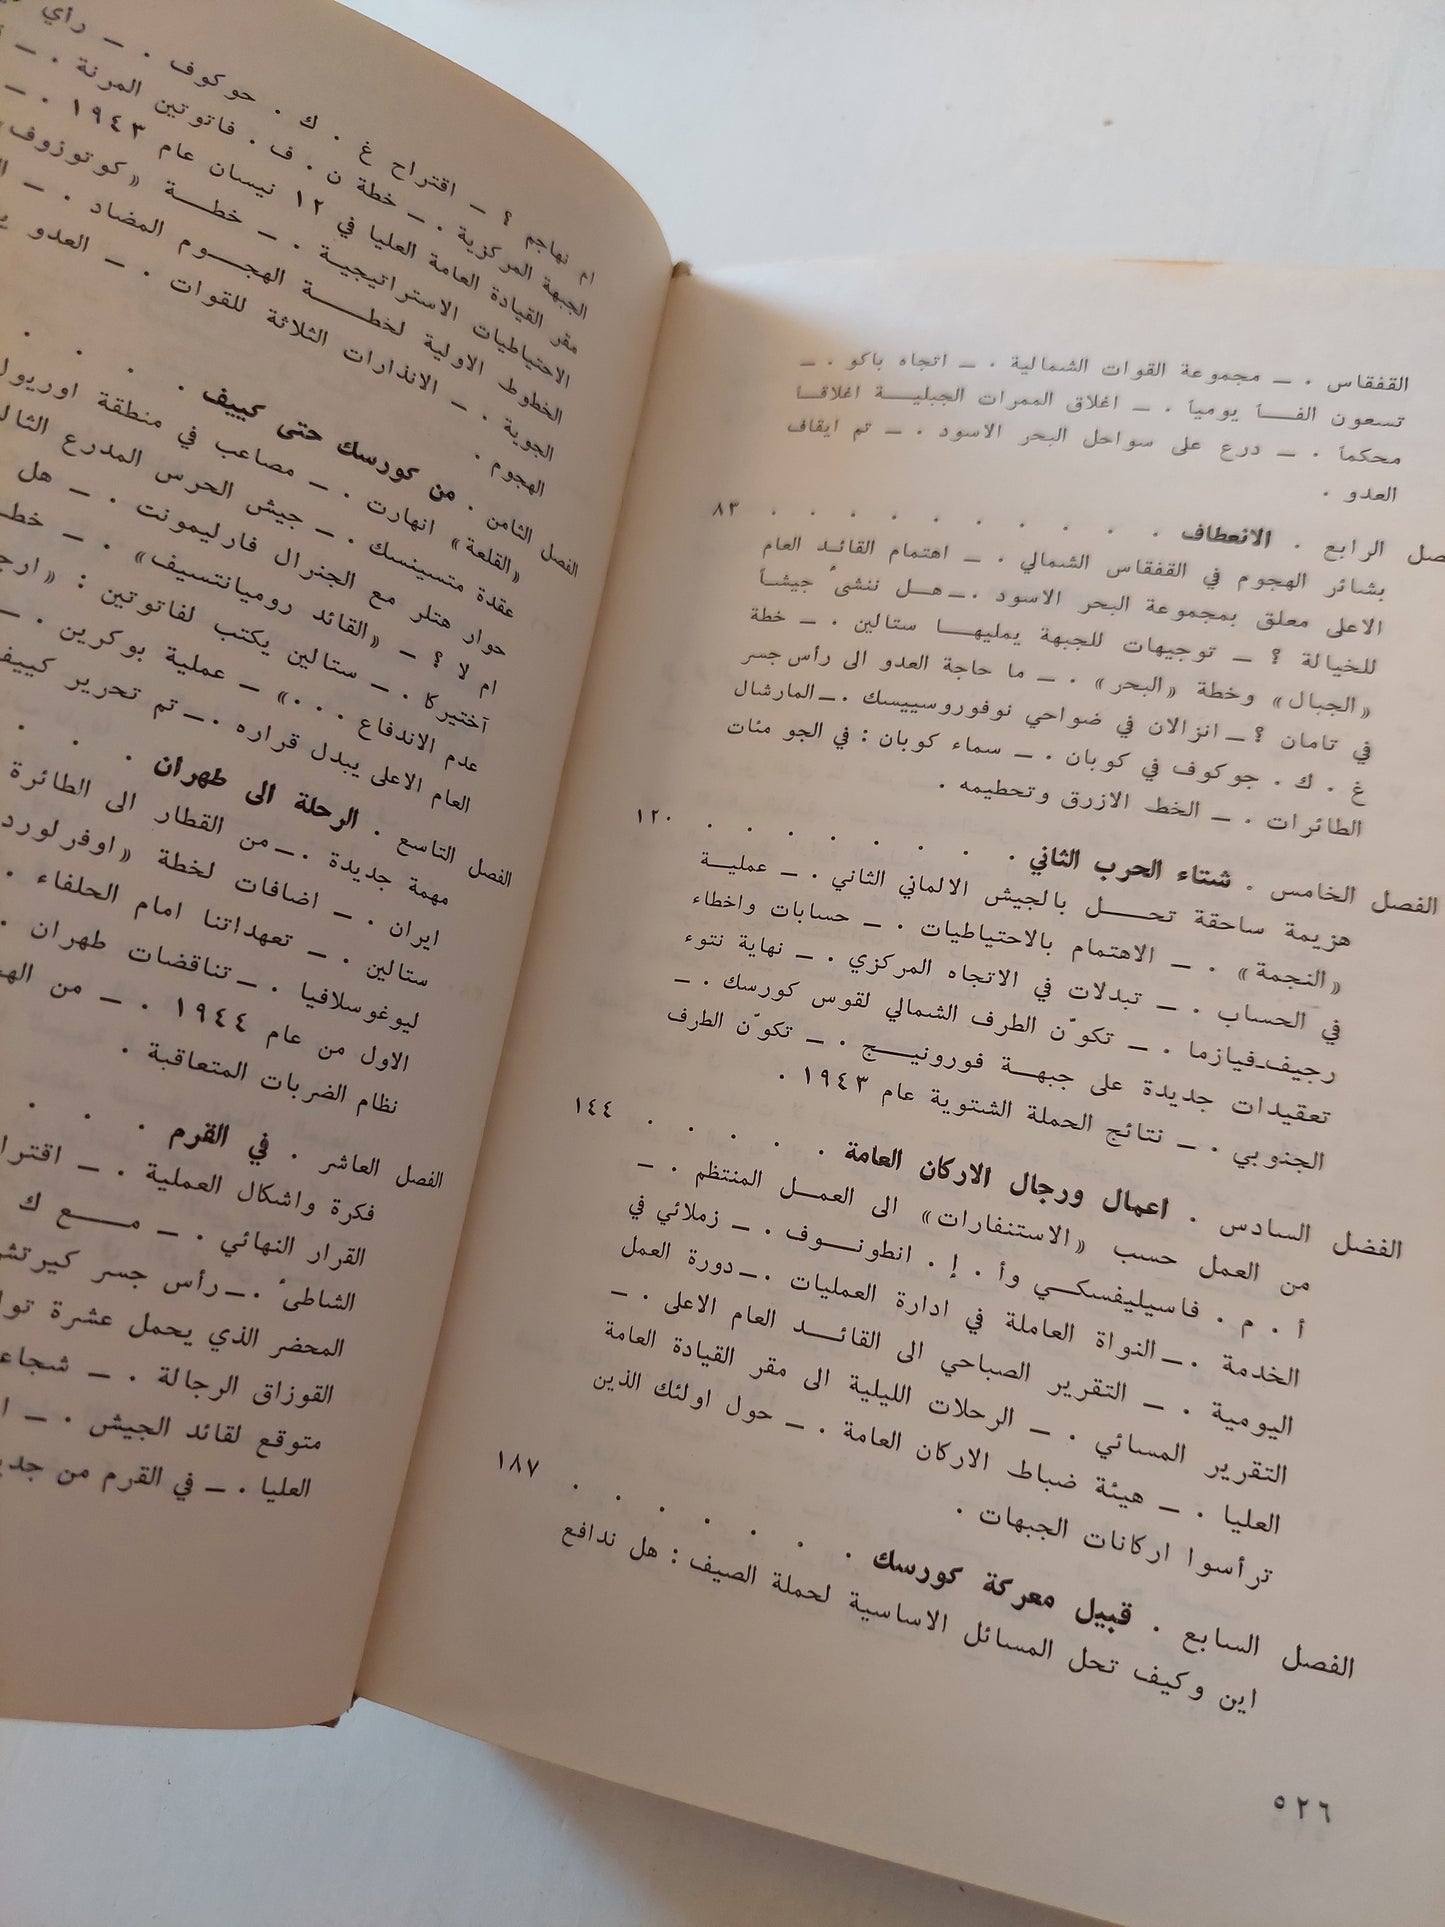 القفقاس . ــ مجموعة القوات الشمالية . ــ اتجاه باكو . ــ
تسعون الفــاً يومياً . ــ اغلاق الممرات الجبليــة اغلاقــاً
محكماً . ــ درع على سواحل البحر الاسود . ــ تم ايقاف
العدو .
صل الرابع . الانعطاف . . . . . . . . . . ٨٣
بشائر الهجوم في القفقاس الشمالي . ــ اهتمام القائد العام
الاعلى معلق بمجموعة البحر الاسود . ــ هــل ننشىء جيشــاً
للخيالة ؟ ــ توجيهات للجبهة يمليهــا ستالين . ــ خطة
«الجبال» وخطة «البحر» . ــ ما حاجة العدو الى رأس جسر
في تامان ؟ ــ انزالان في ضواحي نوفوروسييسك . ــ المارشال
غ . ك . جوكوف في كوبان . ــ سماء كوبان : في الجو مئات
الطائرات . ــ الخط الازرق وتحطيمه .
الفصل الخامس . شتاء الحرب الثاني . . . . . . . . ١٢٠
هزيمة ساحقة تحــل بالجيش الالماني الثاني . ــ عمليــة
«النجمة» . ــ الاهتمام بالاحتياطيات . ــ حسابات واخطاء
في الحساب . ــ تبدلات في الاتجاه المركزي . ــ نهاية نتوء
رجيف-فيازما . ــ تكوّن الطرف الشمالي لقوس كورسك . ــ
تعقيدات جديدة على جبهــة فورونيــج . ــ تكوّن الطرف
الجنوبي . ــ نتائج الحملة الشتوية عام ١٩٤٣ .
الفضل السادس . اعمال ورجال الاركان العامة . . . . . ١٤٤
من العمل حسب «الاستنفارات» الى العمــل المنتظم . ــ
أ . م . فاسيليفسكــي وأ . إ . انطونــوف . ــ زملائي في
الخدمة . ــ النواة العاملة في ادارة العمليات . ــ دورة العمل
اليومية . ــ التقرير الصباحي الى القائــد العام الاعلى . ــ
التقرير المسائي . ــ الرحلات الليلية الى مقر القيادة العامة
العليا . ــ هيئة ضباط الاركان العامة . ــ حول اولئك الذين
ترأسوا اركانات الجبهات .
الفصل السابع . قبيل معركة كورسك . . . . . . . ١٨٧
اين وكيف تحل المسائل الاساسية لحملة الصيف : هل ندافع
٥٢٦
ام نهاجم ؟ ــ اقتراح غ . ك . جوكوف . ــ رأي
الجبهة المركزية . ــ خطة ن . ف . فاتوتين المرنة . ــ
مقر القيادة العامة العليا في ١٢ نيسان عام ١٩٤٣ . ــ
الاحتياطيات الاستراتيجية . ــ خطــة «كوتوزوف»
الخطوط الاولية لخطــة الهجــوم المضاد . ــ
الجوية . ــ الانذارات الثلاثة للقوات . ــ العدو
الهجوم .
الفصل الثامن . من كورسك حتى كييف . . . .
«القلعة» انهارت . ــ مصاعب في منطقة
عقدة متسينسك . ــ جيش الحرس المدرع
حوار هتلر مع الجنرال فارليمونت . ــ هل
ام لا ؟ ــ «القائد روميانتسيف» . ــ
آختيركا . ــ ستالين يكتب لفاتوتين : «
عدم الاندفاع . . .» ــ عملية بوكرين . ــ
العام الاعلى يبدل قراره . ــ تم تحرير كييف
الفصل التاسع . الرحلة الى طهران . . . .
مهمة جديدة . ــ من القطار الى الطائرة
ايران . ــ اضافات لخطة «اوفرلورد
ستالين . ــ تعهداتنا امام الحلفاء .
ليوغوسلافيا . ــ تناقضات طهران .
الاول من عام ١٩٤٤ . ــ من
نظام الضربات المتعاقبة .
الفصل العاشر . في القرم . . . .
فكرة واشكال العملية . ــ
القرار النهائي . ــ مــع ك
الشاطىء . ــ رأس جسر
المحضر الذي يحمل عشرة
القوزاق الرجالة . ــ
متوقع لقائد الجيش . ــ
العليا . ــ في القرم من